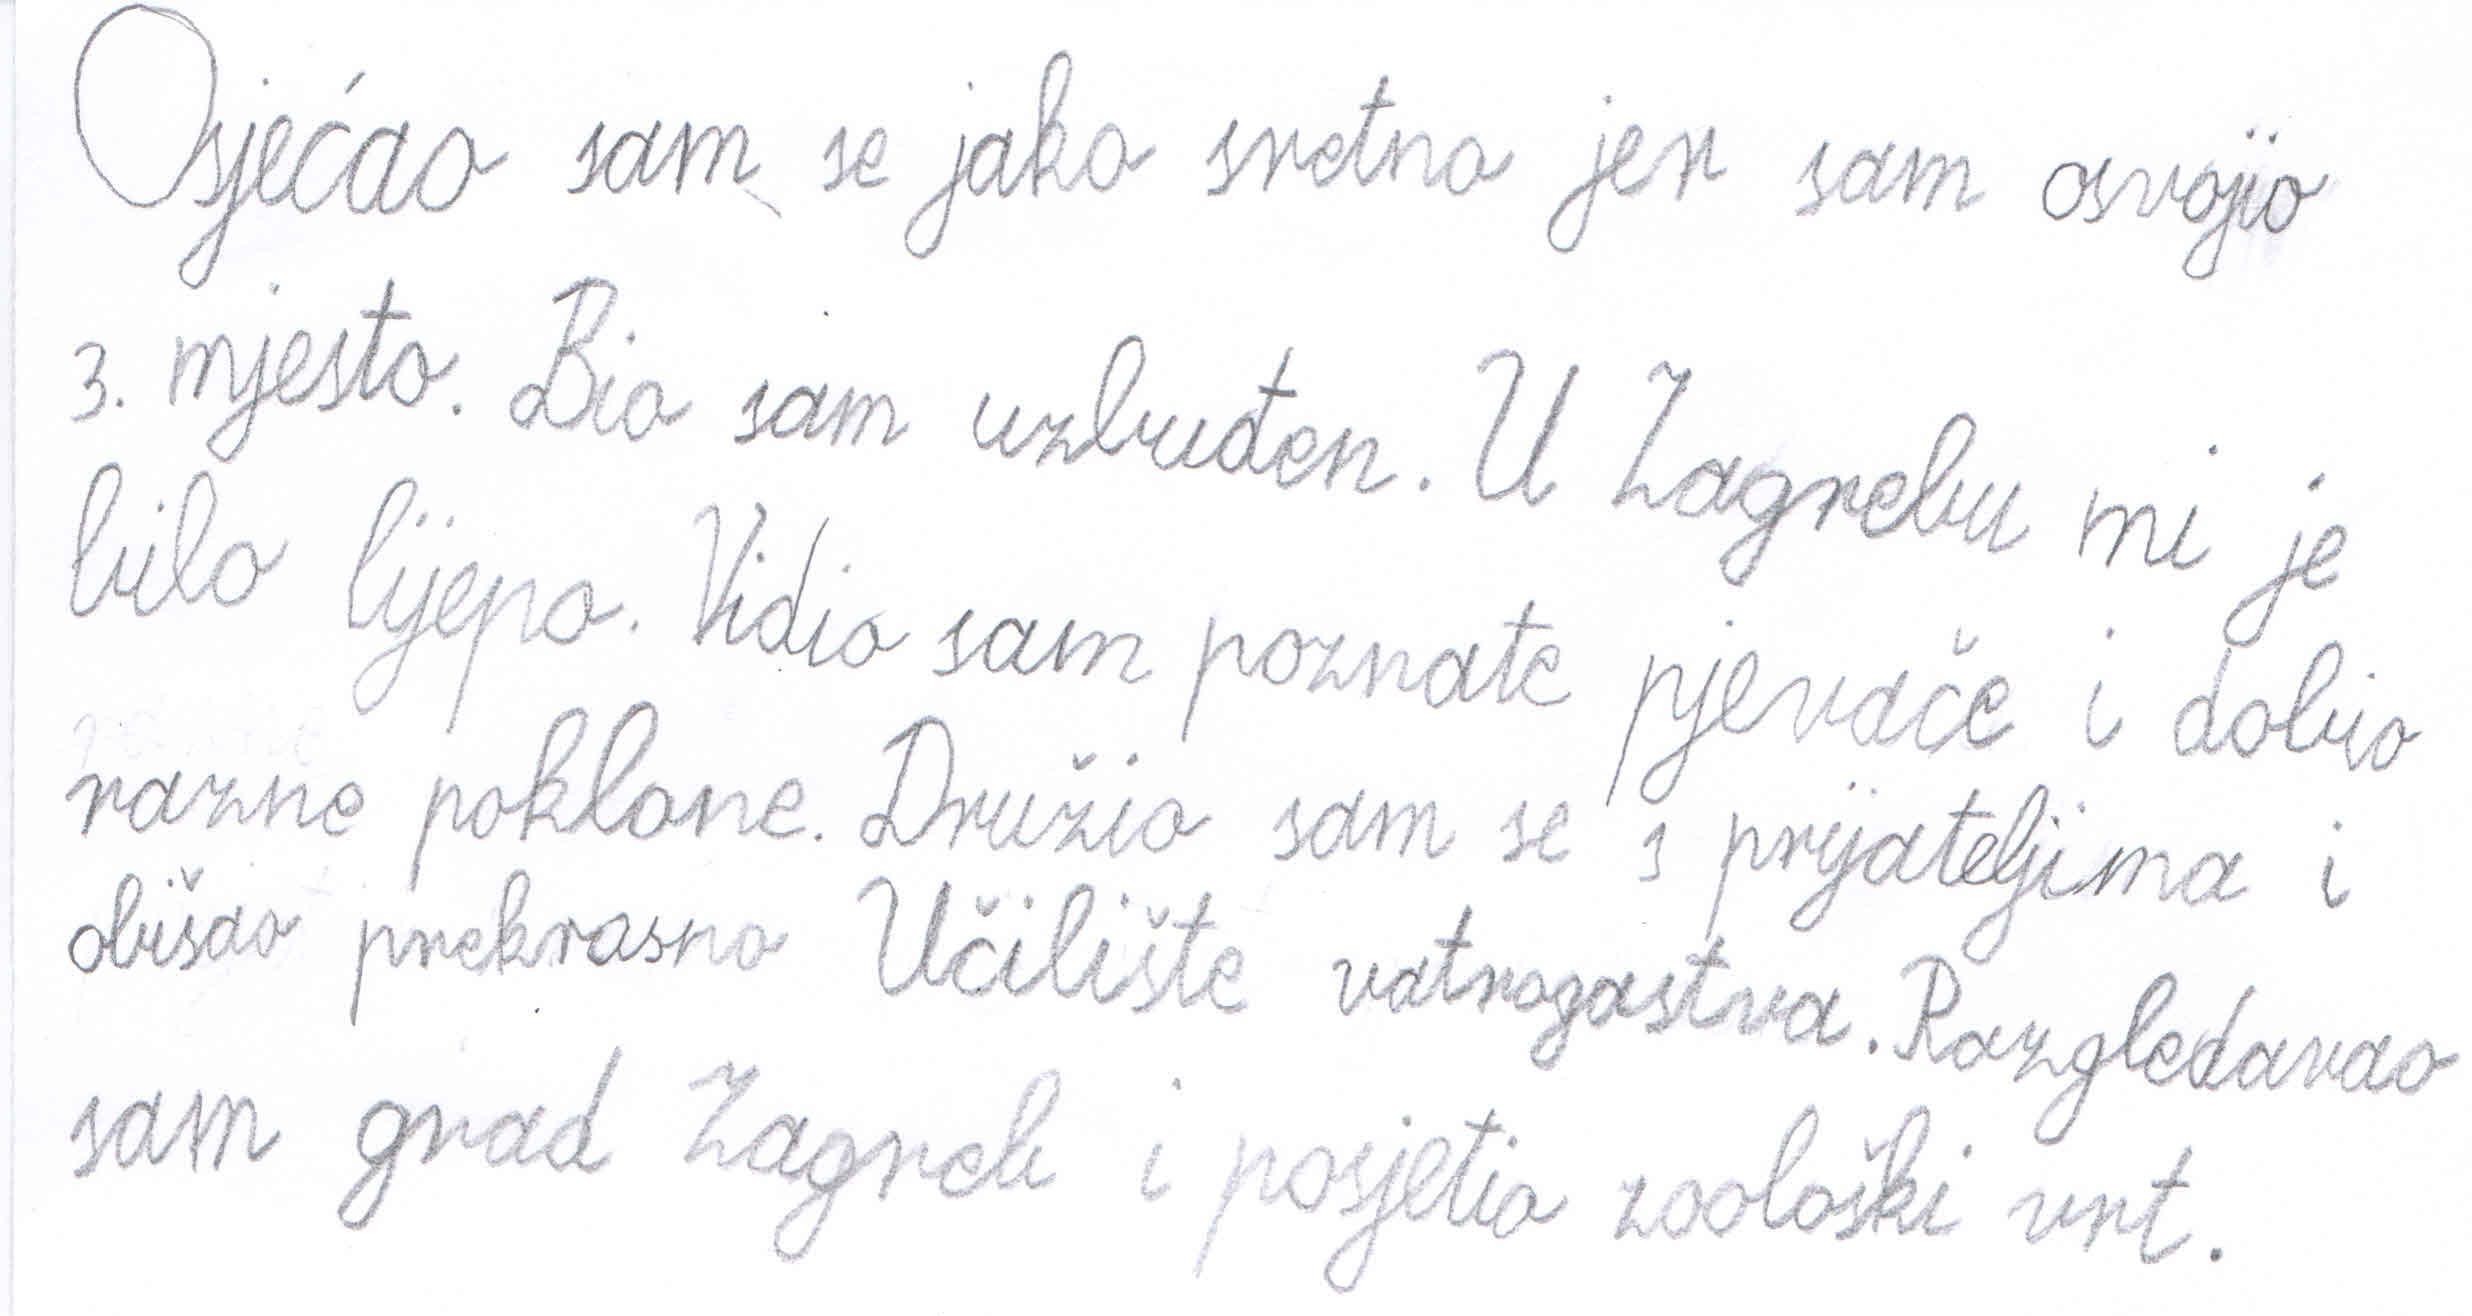 Osjećao sam se jako sretno jer sam osvojio
3. mjesto. Bio sam uzbuđen. U Zagrebu mi je
bilo lijepo. Vidio sam poznate pjevače i dobio
razne poklone. Družio sam se s prijateljima i
obišao prekrasno Učilište vatrogastva. Razgledavao
sam grad Zagreb i posjetio zoološki vrt.